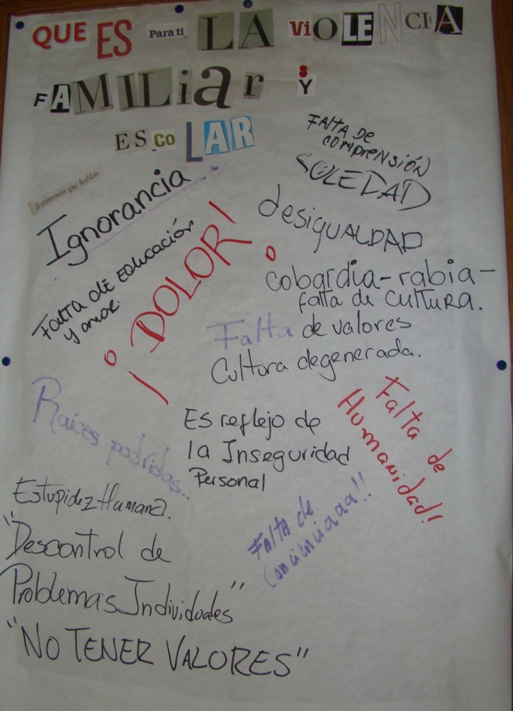 QUE ES Para ti LA VIOLENCIA
FAMILiar Y
ESCOLAR
Testimonios que hablan
FALTA DE
COMPRENSIÓN
SOLEDAD
Ignorancia
desigualdad
Falta de Educación
y amor
¡DOLOR!
cobardia-rabia-
falta de cultura.
Falta de valores
Cultura degenerada.
Raíces podridas..
Es reflejo de
la Inseguridad
Personal
Falta de
Humanidad!
Estupidez Humana.
Falta de
Concienciaaa!!
"Descontrol de
Problemas Individales"
"NO TENER VALORES"